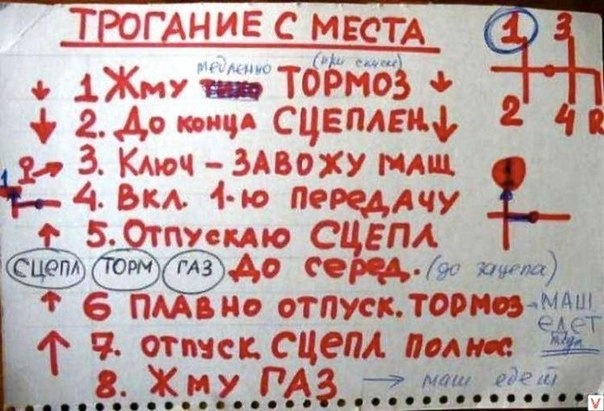 ТРОГАНИЕ С МЕСТА
1 3
2 4 R
МЕДЛЕННО (при спуске)
1 Жму ТИХО ТОРМОЗ
2. До конца СЦЕПЛЕН.
3. Ключ – ЗАВОЖУ МАШ
4. Вкл. 1-ю передачу
1
5. Отпускаю СЦЕПЛ
СЦЕПЛ ТОРМ ГАЗ До серед. (до зацепа)
6 ПЛАВНО отпуск. ТОРМОЗ - МАШ
ЕДЕТ
7. отпуск. СЦЕПЛ полнос.
8. Жму ГАЗ → маш едет
V